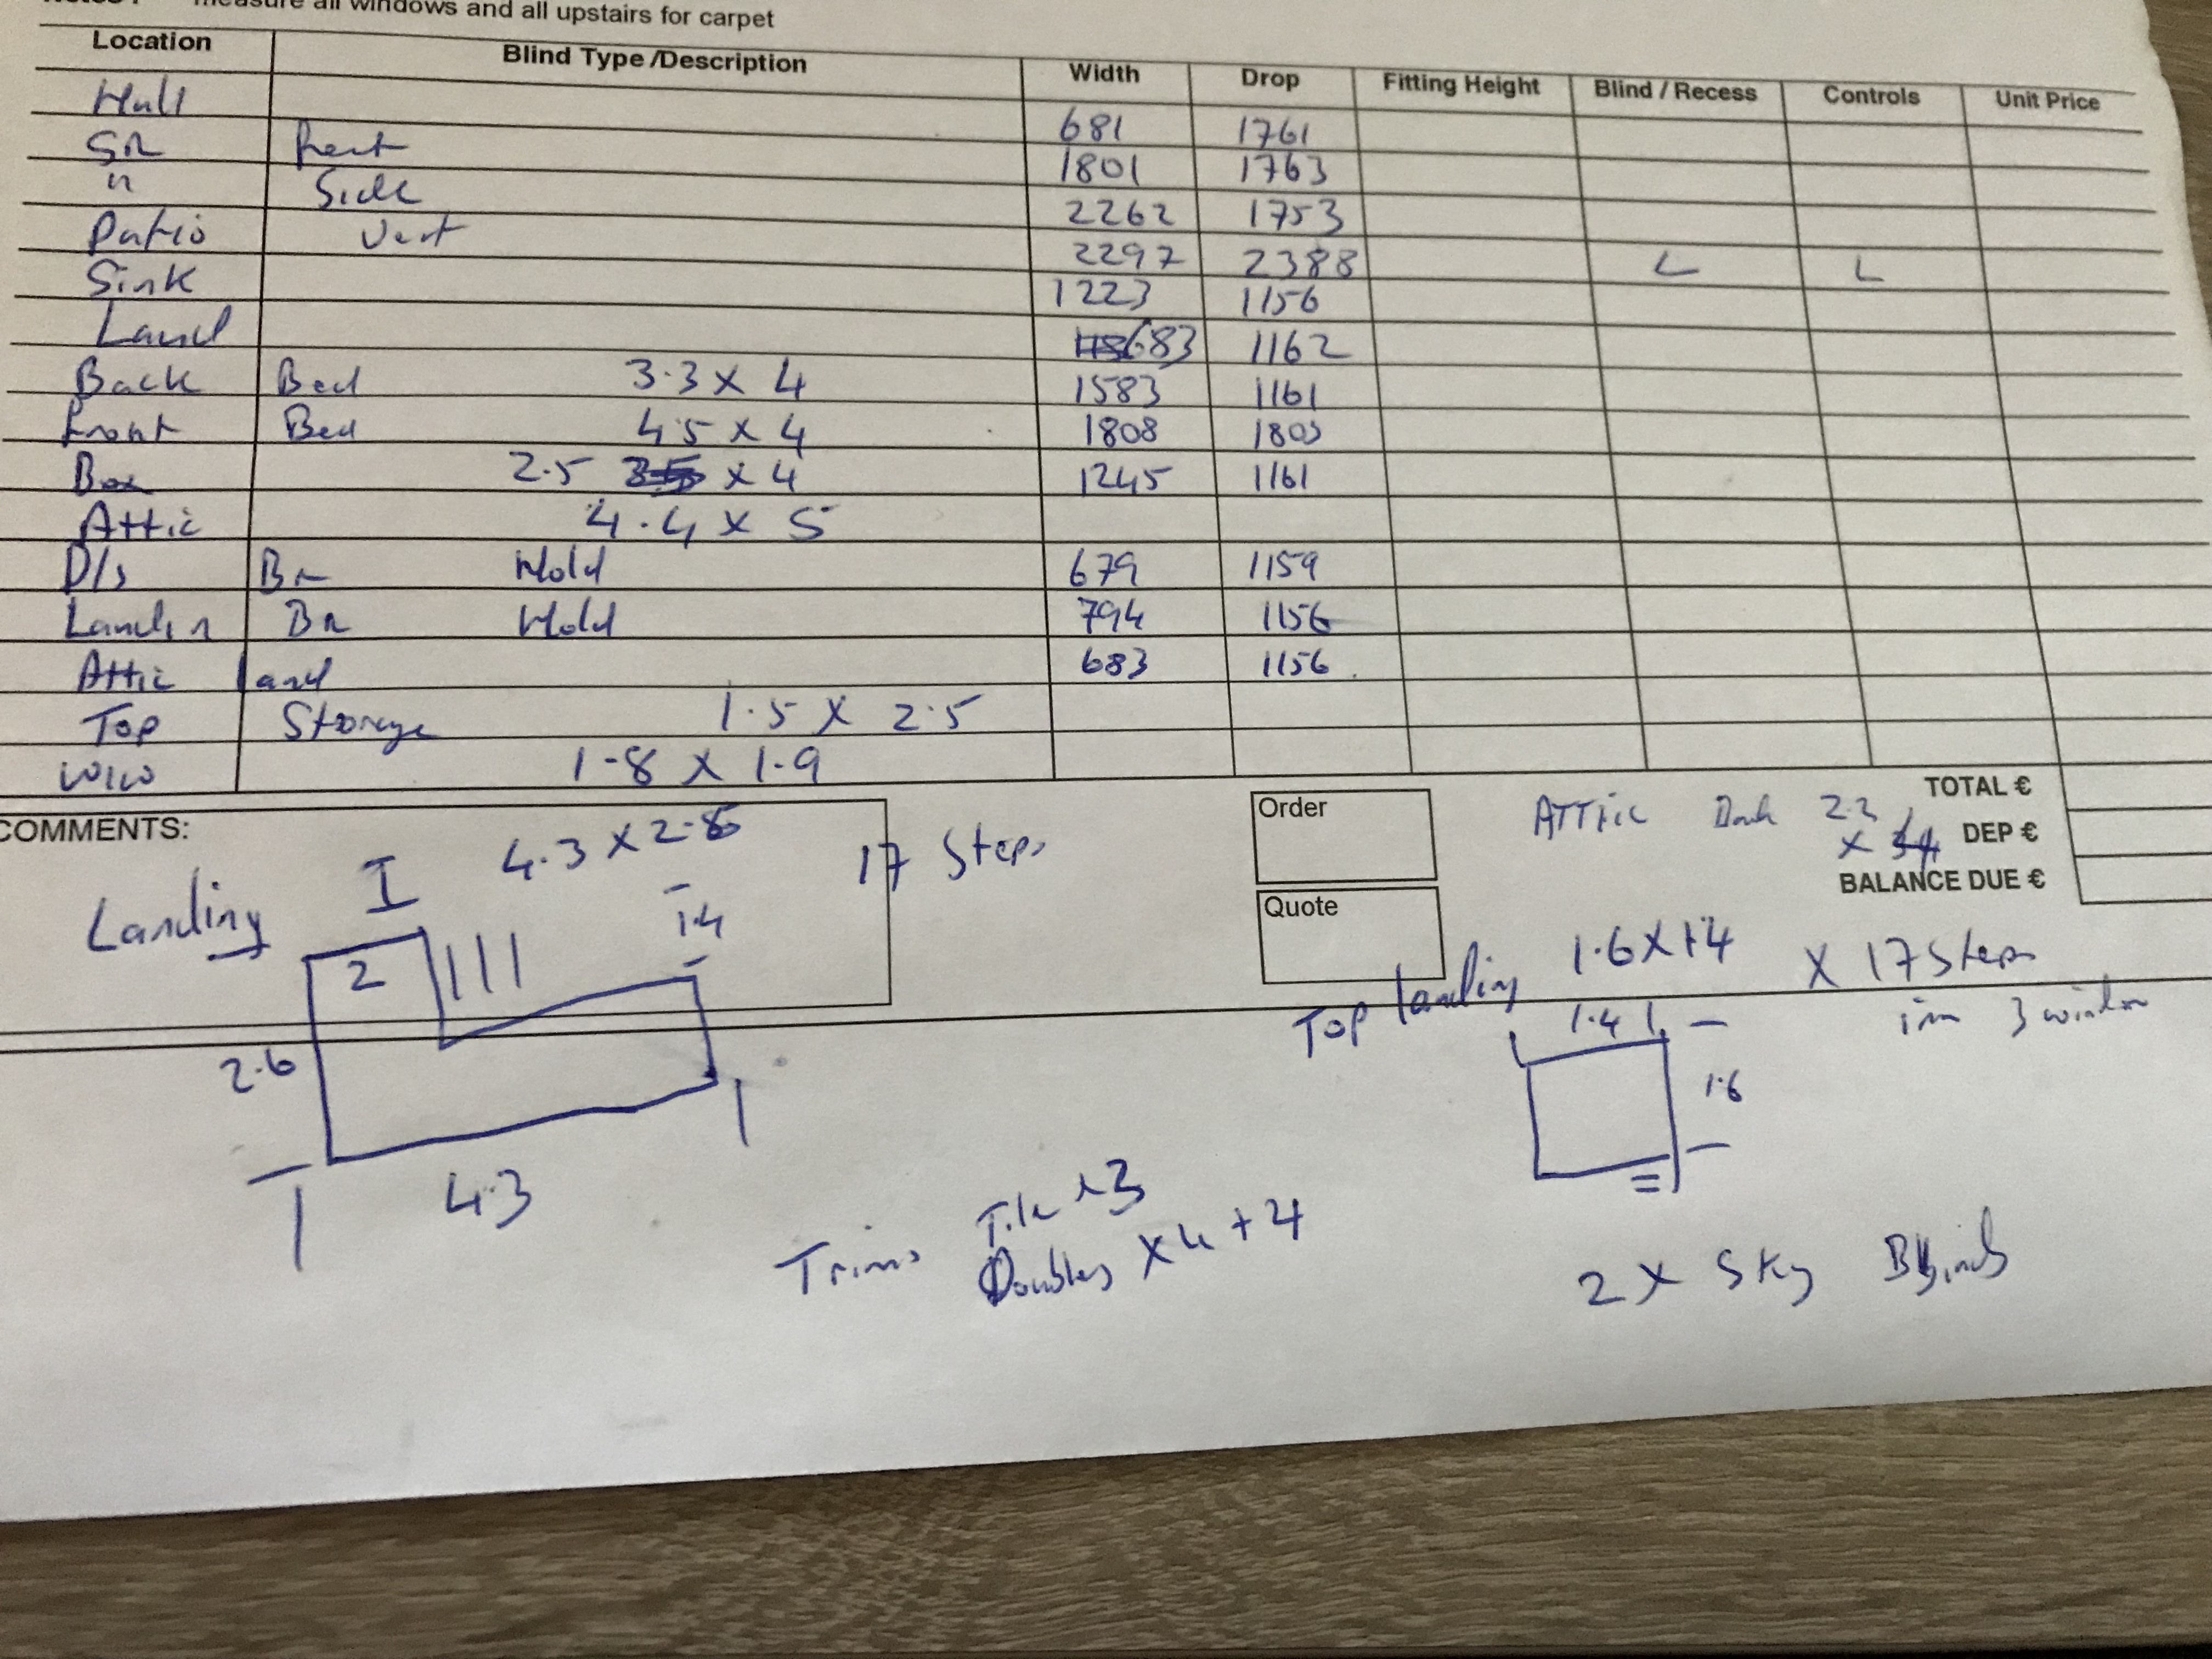 measure all windows and all upstairs for carpet
Location Blind Type /Description Width Drop Fitting Height Blind / Recess Controls Unit Price
Hall 681 1761
SR 1801 1763
" Side 2262 1753
Patio Vert 2297 2388 L L
Sink 1223 1156
Land 683 1162
Back Bed 3.3 x 4 1583 1161
Front Bed 4.5 x 4 1808
Box 2.5 x 4 1245 1161
Attic 4.4 x 5
D/s Br Hold 679 1159
Landin Br Hold 794 1156
Attic land 683 1156
Top Storage 1.5 x 2.5
1.8 x 1.9
COMMENTS:
4.3 x
17 Steps
Landing
I
1.4
2
2.6
4.3
Order
Quote
ATTic
TOTAL €
DEP €
BALANCE DUE €
Top landing 1.6 x 1.4 x 17 Steps
3
1.4
1.6
Trims x3
Doubles x 4 + 4
2 x Sky Blinds